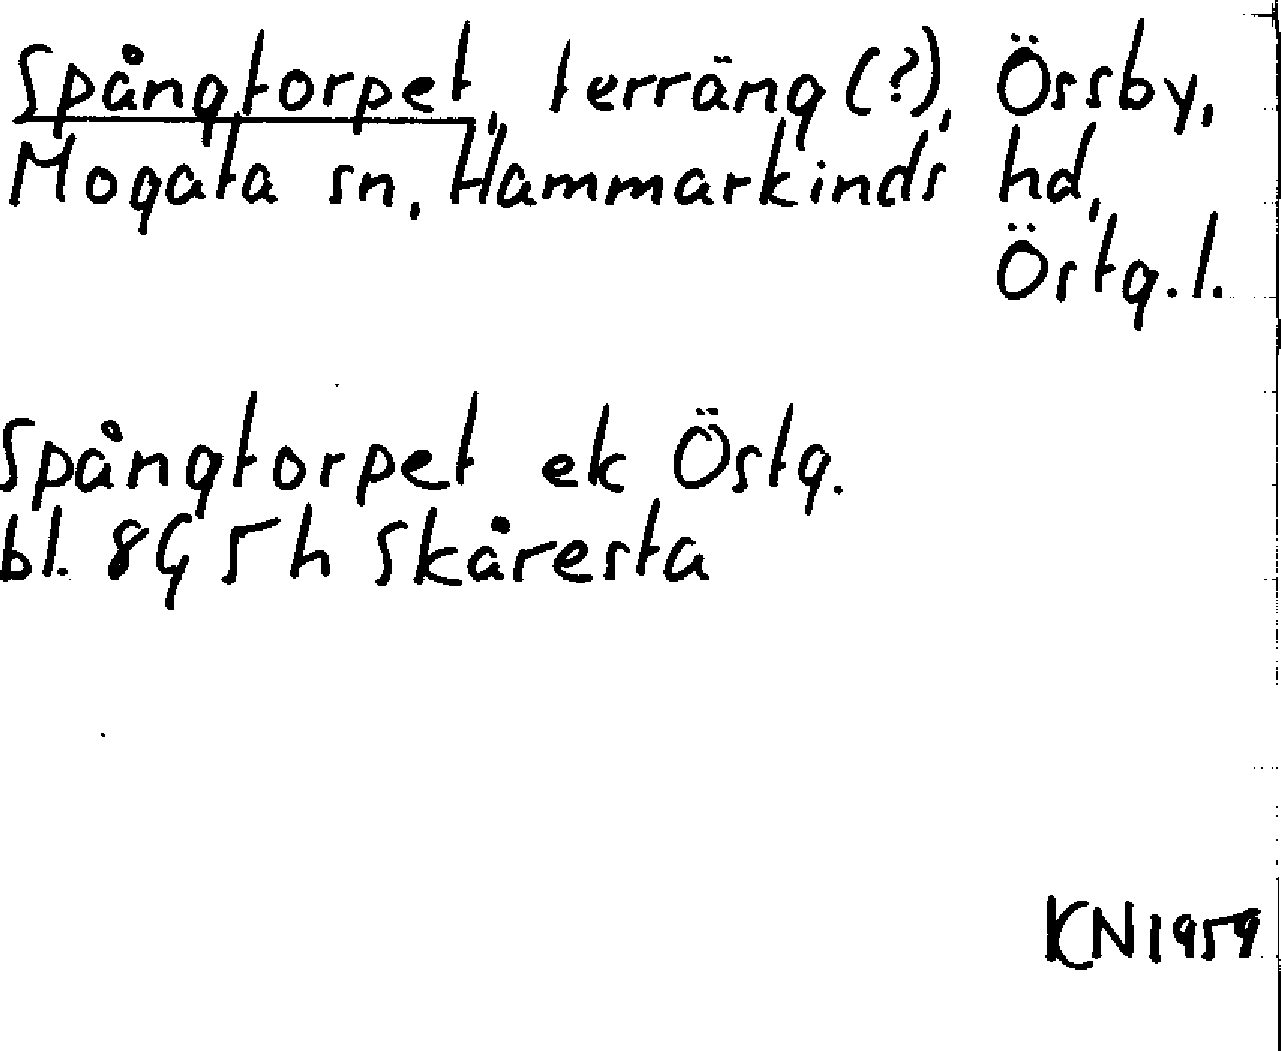 Spångtorpet, terräng (?), Össby,
Mogata sn, Hammarkinds hd,
Östg. l.
Spångtorpet ek Östg.
bl. 8G 5h Skåresta
KN 1959